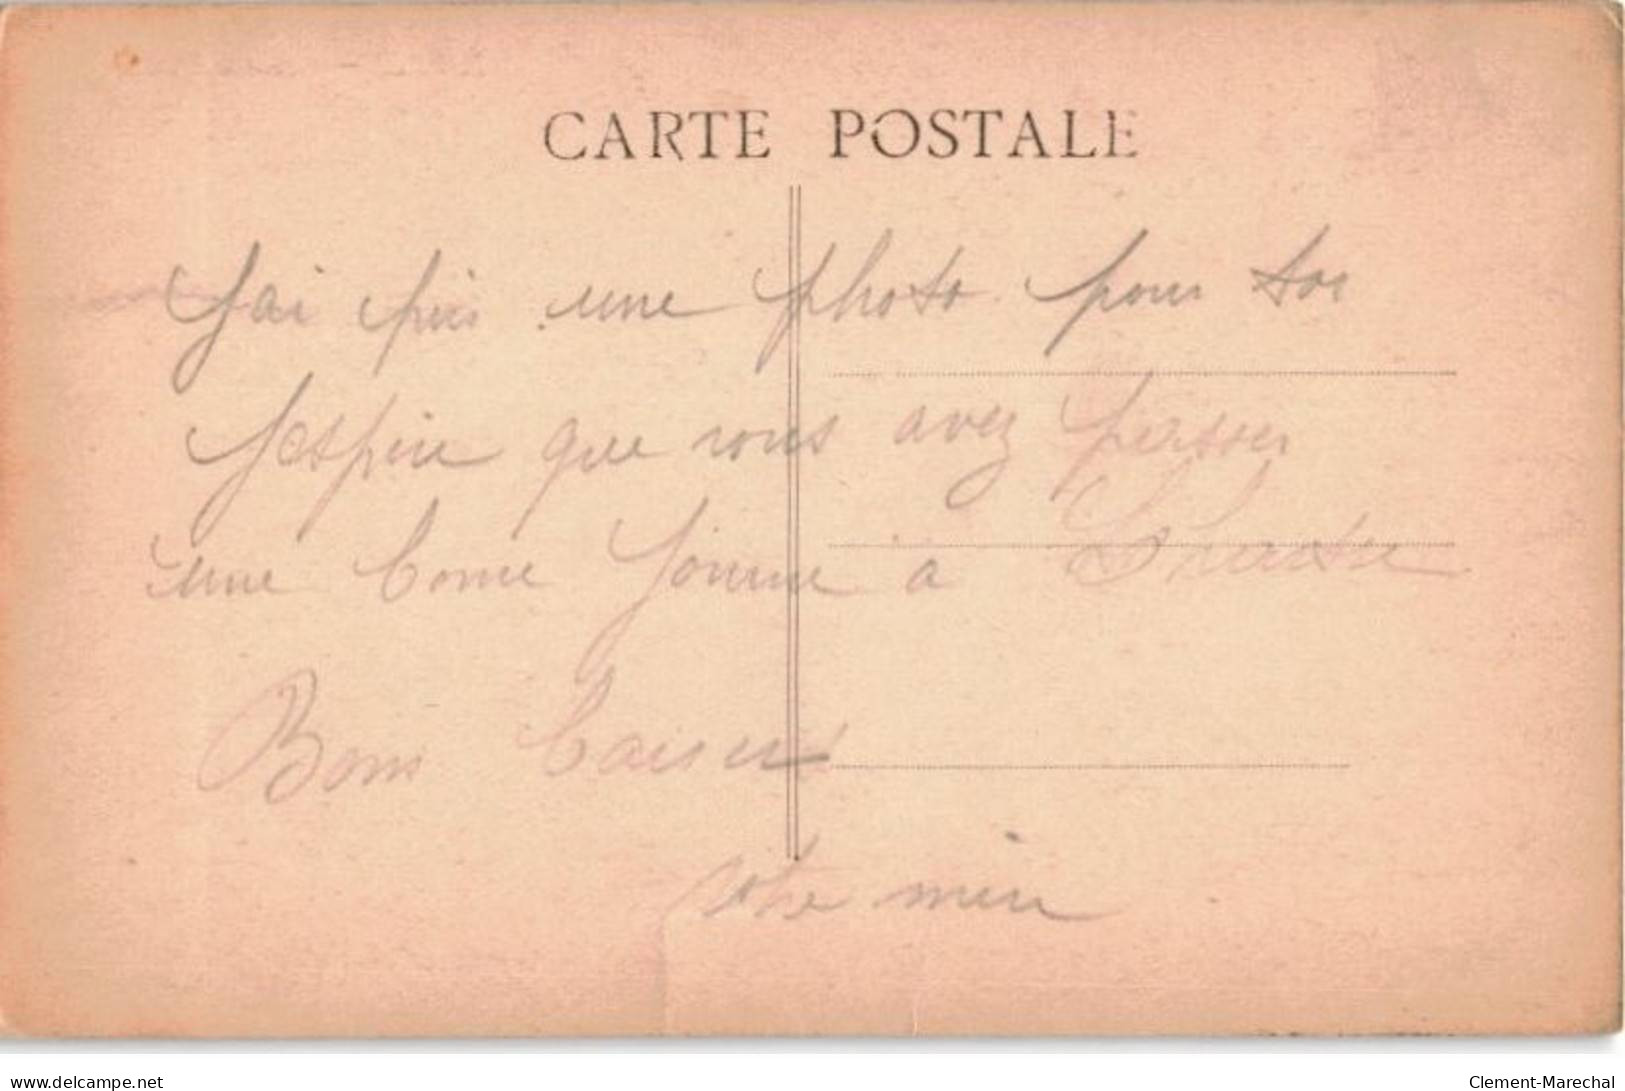 CARTE POSTALE
J'ai pris une photo pour toi
J'espère que vous avez passer
une bonne journée à
Bons baisers
votre mère
www.delcampe.net
Clement-Marechal